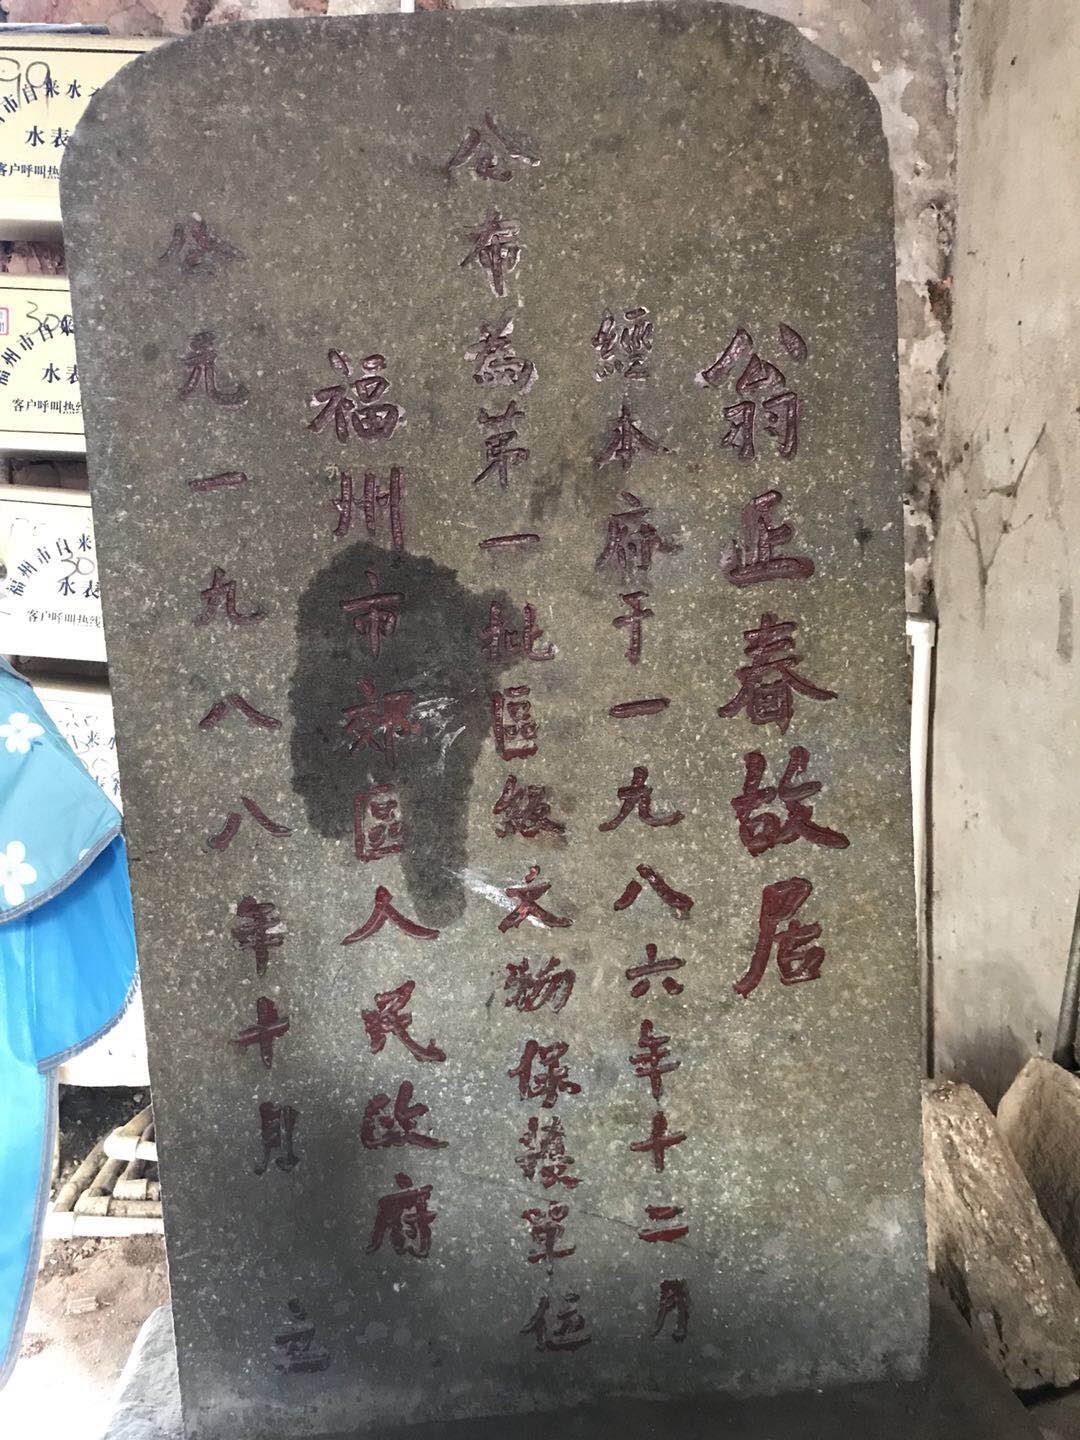 翁正春故居
經本府于一九八六年十二月
公布為第一批區級文物保護單位
福州市郊區人民政府
公元一九八八年十月 立
99
市自来水
水表
客户呼叫热
30
福州市自来
水表
客户呼叫热线
福州市自来
30
水表
客户呼叫热线
来水